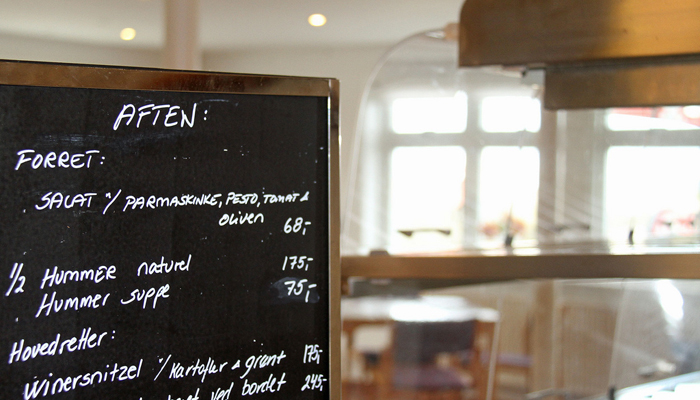 AFTEN:
FORRET:
SALAT m/ PARMASKINKE, PESTO, TOMAT &
oliven
68,-
1/2 HUMMER naturel 175,-
Hummer suppe 75,-
Hovedretter:
Winersnitzel m/ Kartofler & grønt 175,-
ved bordet 245,-